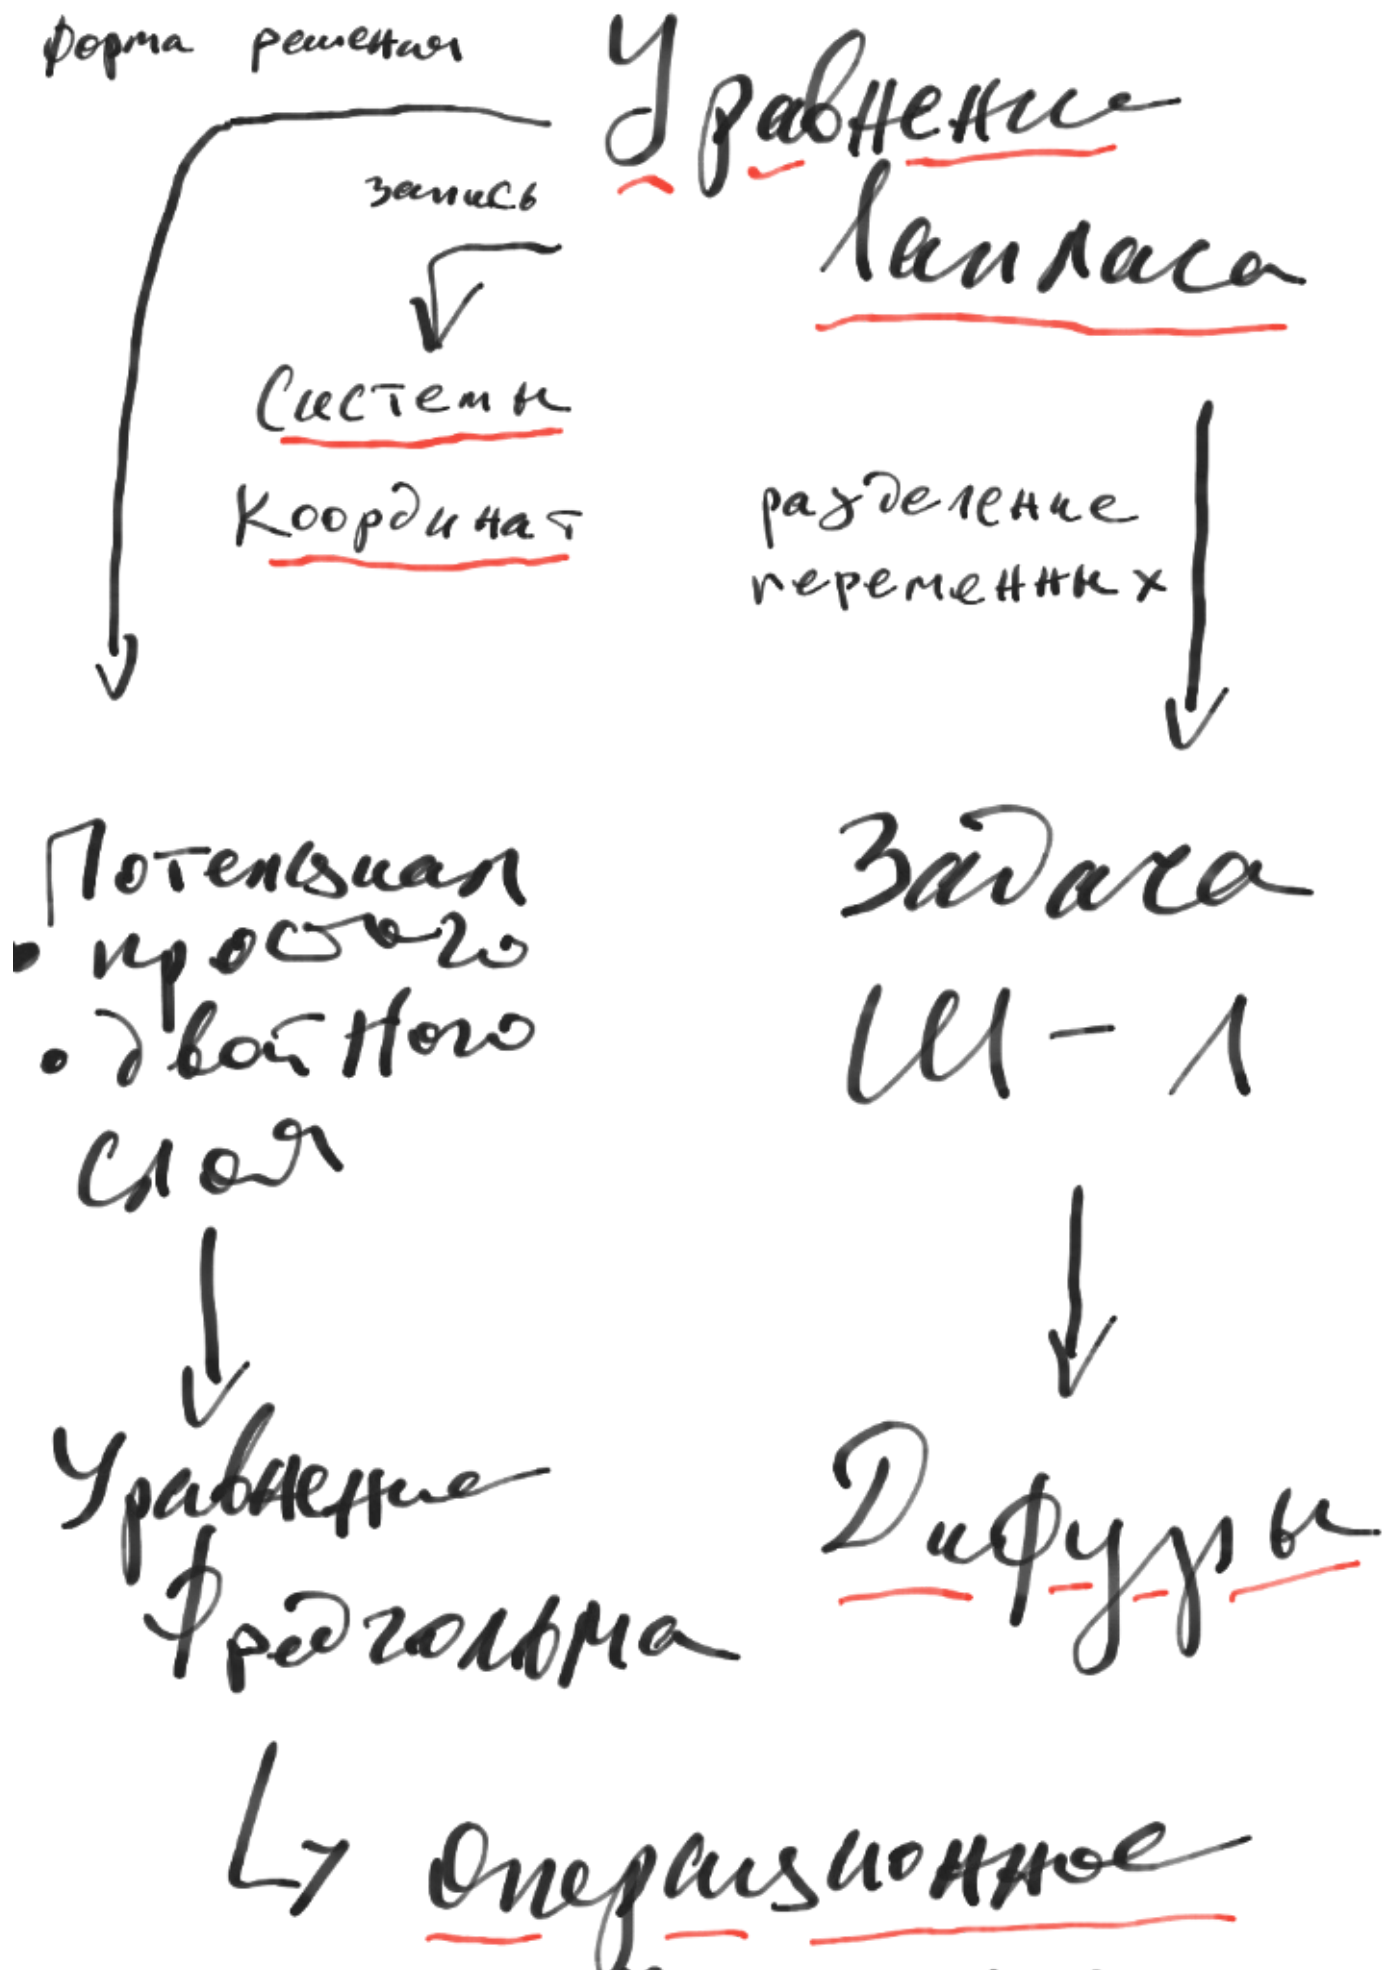 форма решения
Уравнение
запись
Лапласа
Системы
Координат
разделение
переменных
Потенциал
• простого
• двойного
слоя
Задача
Ш - Л
Уравнение
Фредгольма
Дифуры
Операционное